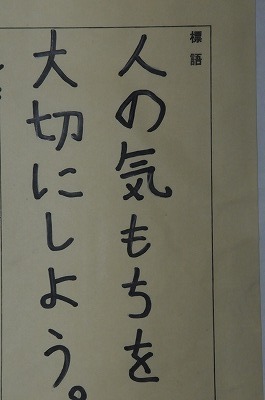 標語
人の気もちを
大切にしよう。